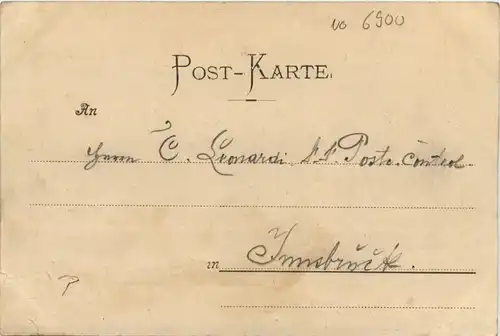 vo 6900
POST-KARTE.
An
Herrn C. Leonardi k.k. Postc. Control.
in Innsbruck.